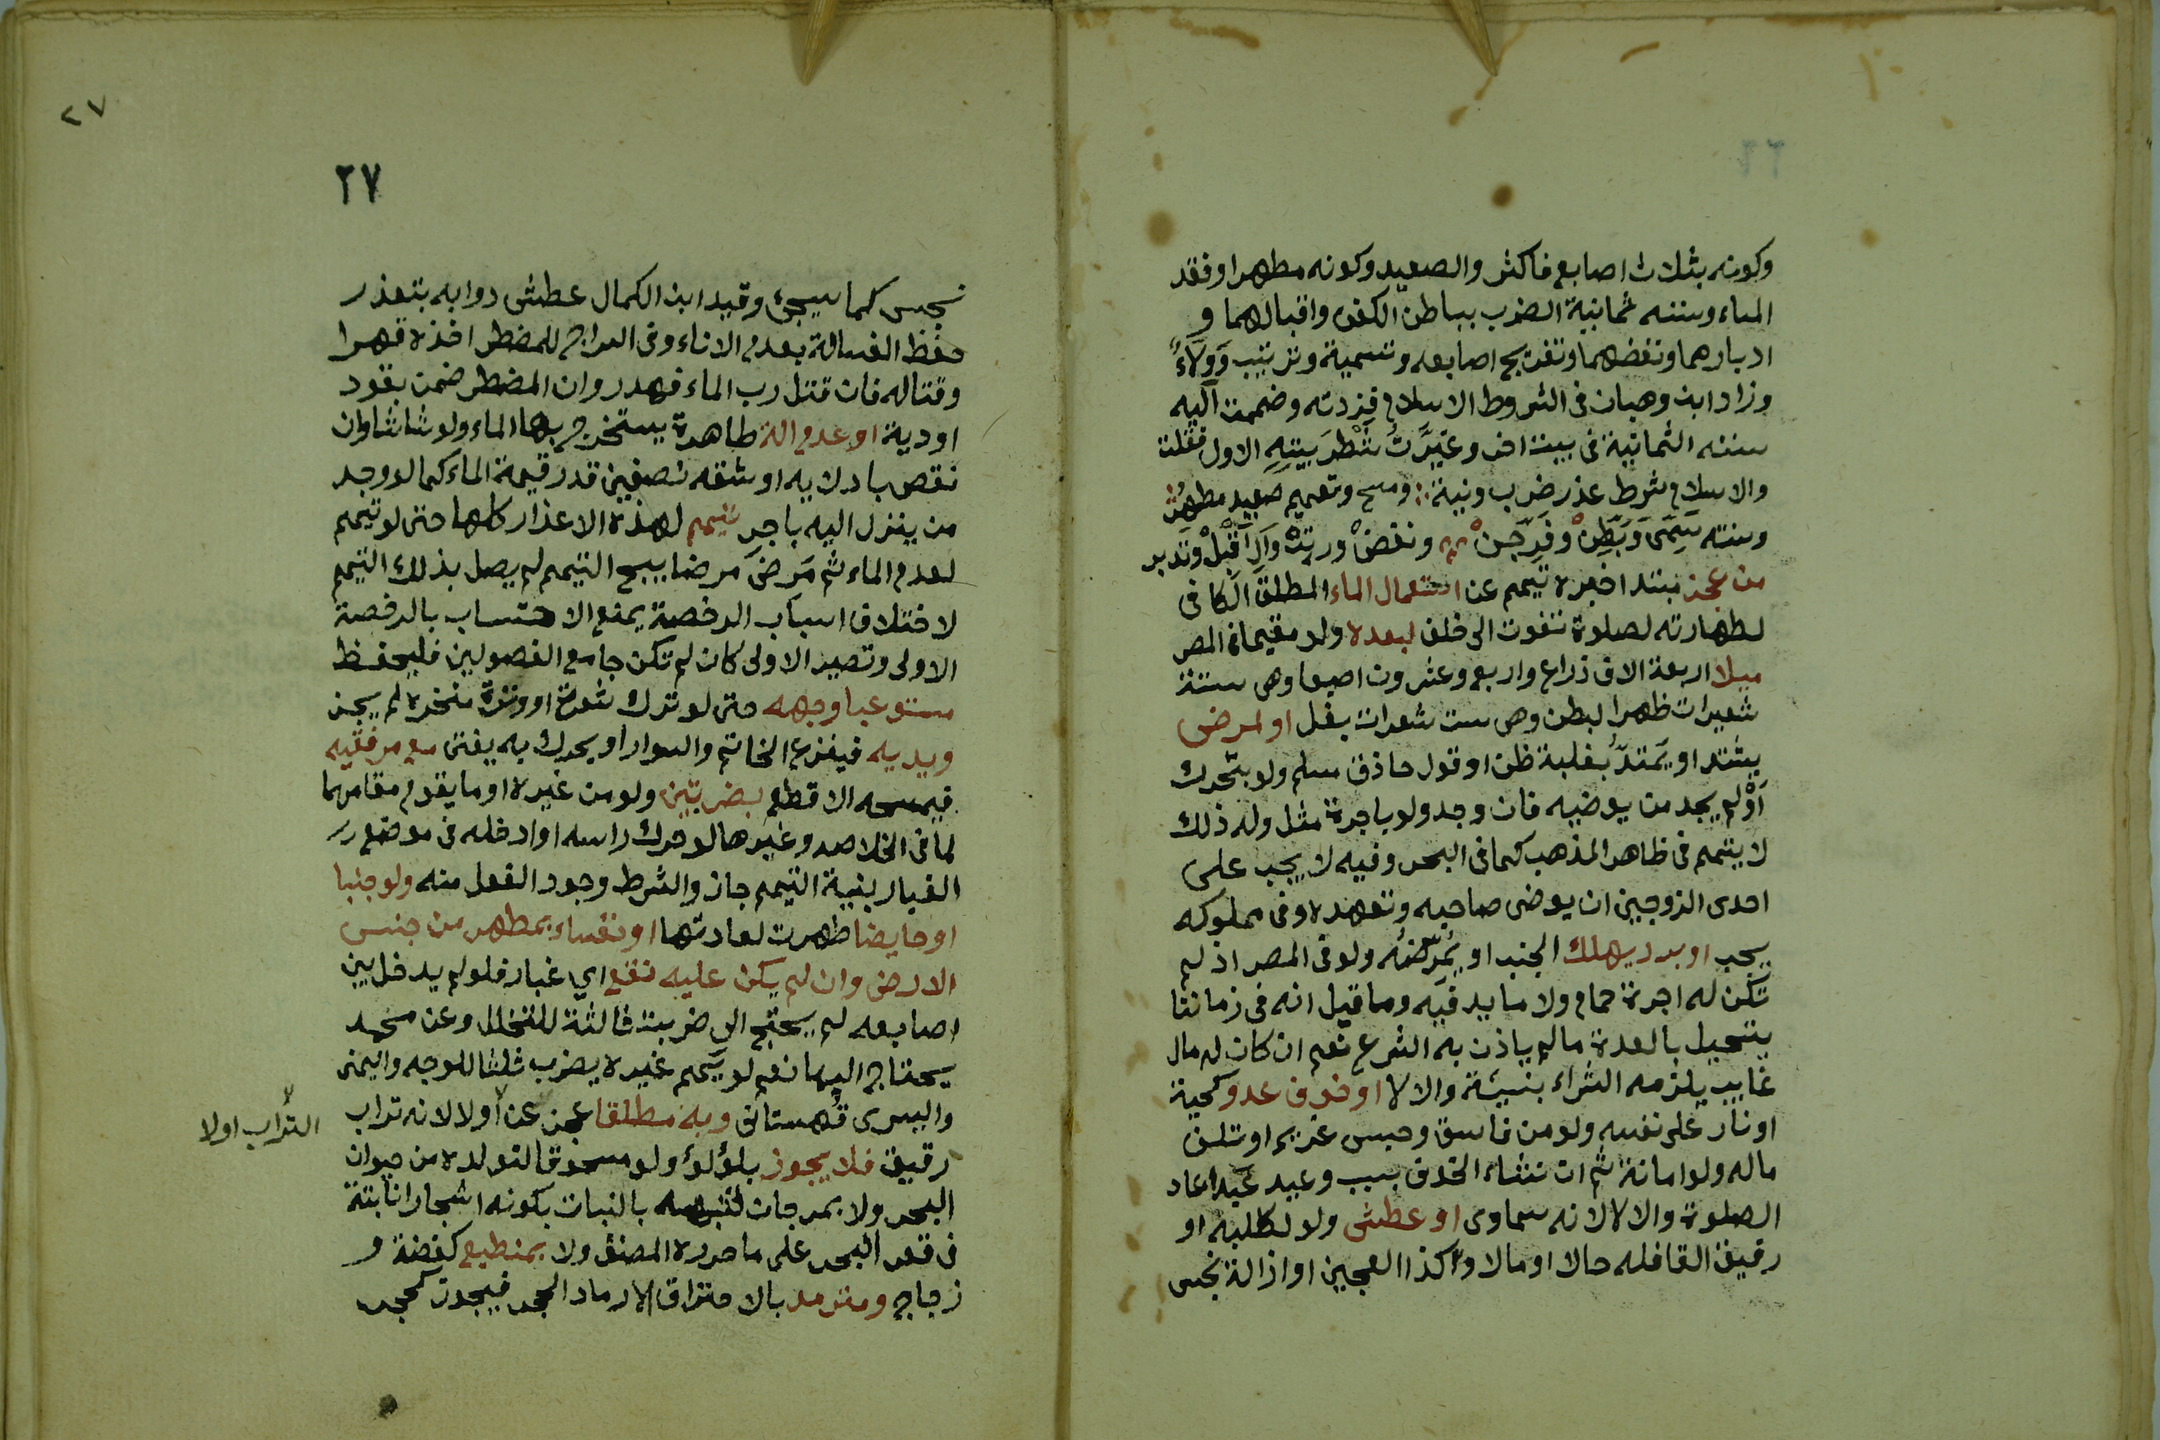 وكونه بثلاث اصابع فاكثر والصعيد وكونه مطهرا وفقد
الماء وسننه ثمانية الضرب بباطن الكفين واقبالهما و
ادبارهما ونفضهما وتفريج اصابعه وتسمية وترتيب وَوِلَاءٌ
وزاد ابن وهبان في الشروط الاسلام فزدته وضممت اليه
سننه الثمانية في بيت اخر وغيَّرْتُ شَطْرَ بيتِهِ الاول فقلت
والاسلام شرط عذر ضرب ونية ومسح وتعميم صعيد مطهر
وسننه سَمِّى وَبَطِّنْ وفَرِّجَنْ ونفضْ ورتبْ وَالِ اَقْبِلْ وتدبر
من عجز مبتدا خبره تيمم عن استعمال الماء المطلق الكافى
لطهارته لصلوة تفوت الى خلف لبعده ولو مقيما فى المصر
ميلا اربعة الاف ذراع واربع وعشرون اصبعا وهى ستة
شعيرات ظهرا لبطن وهى ست شعرات بغل او لمرض
يشتد او يَمتدّ بغلبة ظن او قول حاذق مسلم ولو بتحرك
اَوْ لم يجد من يوضيه فان وجد ولو باجرة مثل وله ذلك
لا يتيمم فى ظاهر المذهب كما فى البحر وفيه لا يجب على
احدى الزوجين ان يوضى صاحبه وتعهده وفى مملوكه
يجب او برد يهلك الجنب او يُمَرِّضُهُ ولو فى المصر اذ لم
تكن له اجرة حمام ولا ما يدفيه وما قيل انه فى زماننا
يتحيل بالعدة مالم ياذن به الشرع نعم ان كان له مال
غايب يلزمه الشراء بنسيئة والا لا او خوف عدو كحية
او نار على نفسه ولو من فاسق وحبس غريم او تلف
ماله ولو امانة ثم ان نشاء الخوف بسبب وعيد عبد اعاد
الصلوة والا لا لانه سماوى او عطش ولو لكلبه او
رفيق القافله حالا او مالا وكذا العجين او ازالة نجس
٢٧
٢٧
نجس كما سيجئ وقيد ابن الكمال عطش دوابه بتعذر
حفظ الغسالة بعدم الاناء وفى السراج للمضطر اخذه قهرا
وقتاله فان قتل رب الماء فهدر وان المضطر ضمن بقود
او دية او عدم الة طاهرة يستخرج بها الماء ولو شاشا وان
نقص بادلايه او شقه نصفين قدر قيمة الماء كما لو وجد
من ينزل اليه باجر تيمم لهذه الاعذار كلها حتى لو تيمم
لعدم الماء ثم مَرِضَ مَرضا يبيح التيمم لم يصل بذلك التيمم
لاختلاف اسباب الرخصة يمنع الاحتساب بالرخصة
الاولى وتصير الاولى كان لم تكن جامع الفصولين فليحفظ
مستوعبا وجهه حتى لو ترك شعرة او وترة منخره لم يجز
ويديه فينزع الخاتم والسوار او يحرك به يفتى مع مرفقيه
فيمسحه الاقطع بضربتين ولو من غيره او ما يقوم مقامهما
لما فى الخلاصه وغيرها لو حرك راسه او ادخله فى موضع
الغبار بنية التيمم جاز والشرط وجود الفعل منه ولو جنبا
او حايضا طهرت لعادتها او نفساء بمطهر من جنس
الارض وان لم يكن عليه نقع اي غبار فلو لم يدخل بين
اصابعه لم يحتج الى ضربة ثالثة للتخلل وعن محمد
يحتاج اليها نعم لو يَمم غيره يضرب ثلثا للوجه واليمنى
واليسرى قهستانى وبه مطلقا عجز عن اولا لانه تراب
التراب اولا
رقيق فلا يجوز بلؤلؤ ولو مسحوقا لتولده من حيوان
البحر ولا بمرجان لشبهه بالنبات بكونه اشجارا نابتة
فى قعر البحر على ما حرره المصنف ولا بمنطبع كفضة و
زجاج ومترمد بالاحتراق الا رماد الحجر فيجوز كحجر